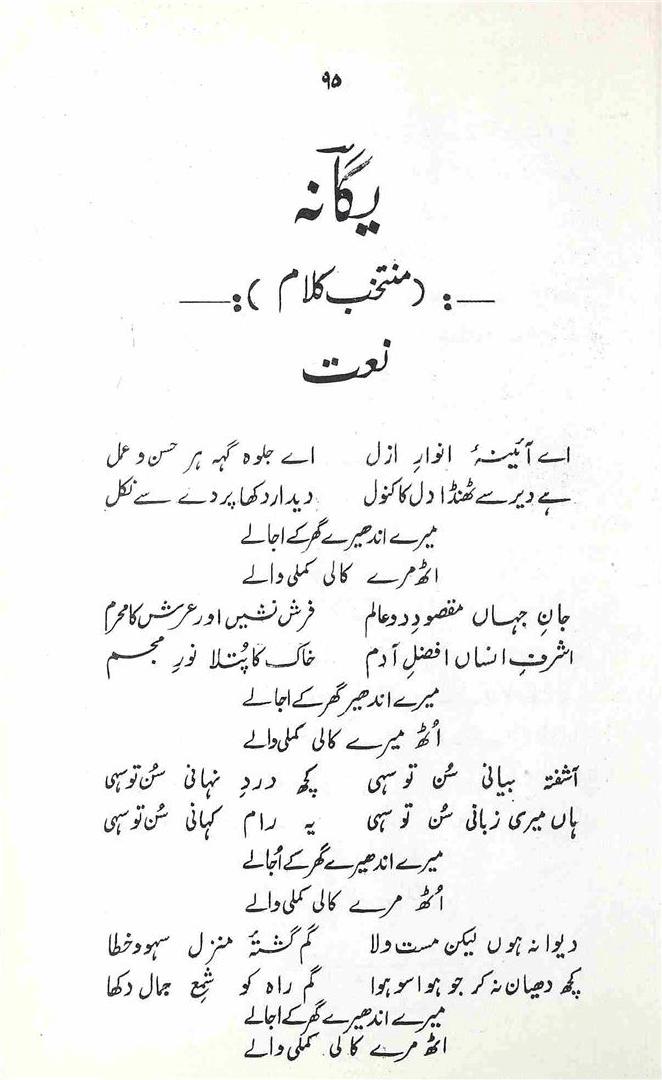 ۹۵
یگانہ
—: (منتخب کلام) :—
نعت
اے آئینۂ انوارِ ازل اے جلوہ گہہ ہر حسن و عمل
ہے دیر سے ٹھنڈا دل کا کنول دیدار دکھا پردے سے نکل
میرے اندھیرے گھر کے اجالے
اٹھ مرے کالی کملی والے
جانِ جہاں مقصودِ دو عالم فرش نشیں اور عرش کا محرم
اشرفِ انساں افضلِ آدم خاک کا پُتلا نورِ مجسم
میرے اندھیر گھر کے اجالے
اُٹھ میرے کالی کملی والے
آشفتہ بیانی سُن تو سہی کچھ دردِ نہانی سُن تو سہی
ہاں میری زبانی سُن تو سہی یہ رام کہانی سُن تو سہی
میرے اندھیرے گھر کے اُجالے
اُٹھ مرے کالی کملی والے
دیوانہ ہوں لیکن مست ولا گم گشتۂ منزل سہو و خطا
کچھ دھیان نہ کر جو ہوا سو ہوا گم راہ کو شمعِ جمال دکھا
میرے اندھیرے گھر کے اجالے
اٹھ مرے کالی کملی والے